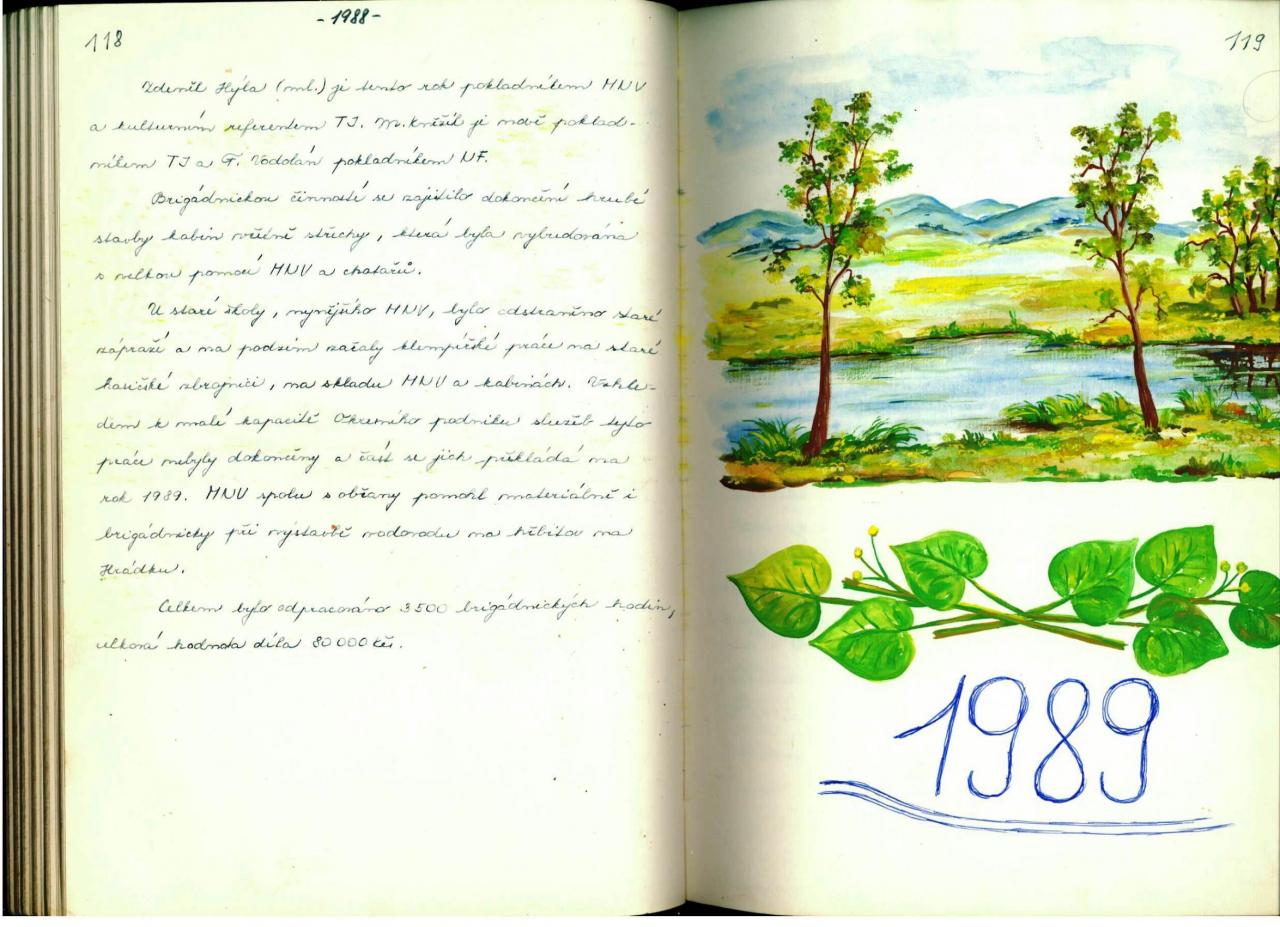 118
- 1988 -
Zdeněk Hýla (ml.) je tento rok pokladníkem MNV
a kulturním referentem TJ. M. Kněžík je nově poklad-
níkem TJ a F. Vodolán pokladníkem NF.
Brigádnickou činností se zajistilo dokončení hrubé
stavby kabin včetně střechy, která byla vybudována
s velkou pomocí MNV a chatařů.
U staré školy, nynějšího MNV, bylo odstraněno staré
zápraží a na podzim začaly klempířské práce na staré
hasičské zbrojnici, na skladu MNV a kabinách. Vzhle-
dem k malé kapacitě Okresního podniku služeb tyto
práce nebyly dokončeny a část se jich překládá na
rok 1989. MNV spolu s občany pomohl materiálně i
brigádnicky při výstavbě vodovodu na hřbitov na
Hrádku.
Celkem bylo odpracováno 3500 brigádnických hodin,
celková hodnota díla 80 000 Kčs.
119
1989